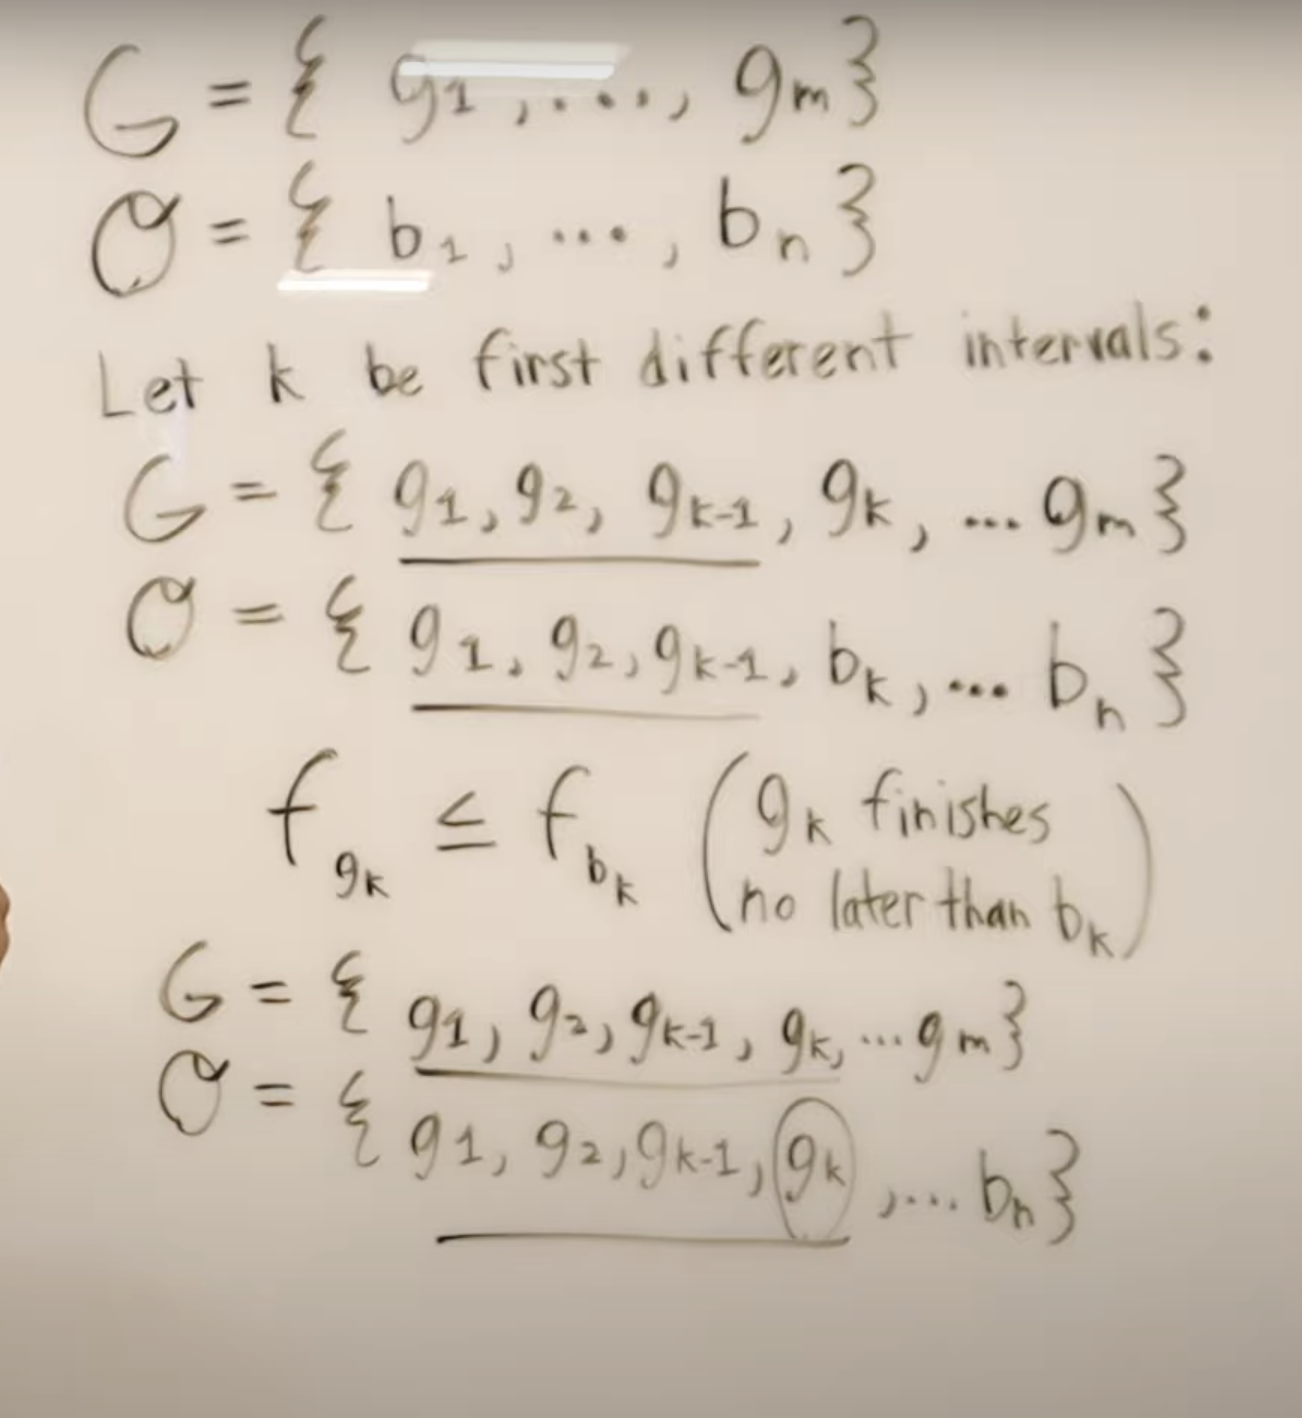 G = { g₁, ..., gₘ}
O = { b₁, ..., bₙ}
Let k be first different intervals:
G = { g₁, g₂, gₖ₋₁, gₖ, ... gₘ}
O = { g₁, g₂, gₖ₋₁, bₖ, ... bₙ}
f_gₖ ≤ f_bₖ (gₖ finishes
no later than bₖ)
G = { g₁, g₂, gₖ₋₁, gₖ, ... gₘ}
O = { g₁, g₂, gₖ₋₁, gₖ, ... bₙ}